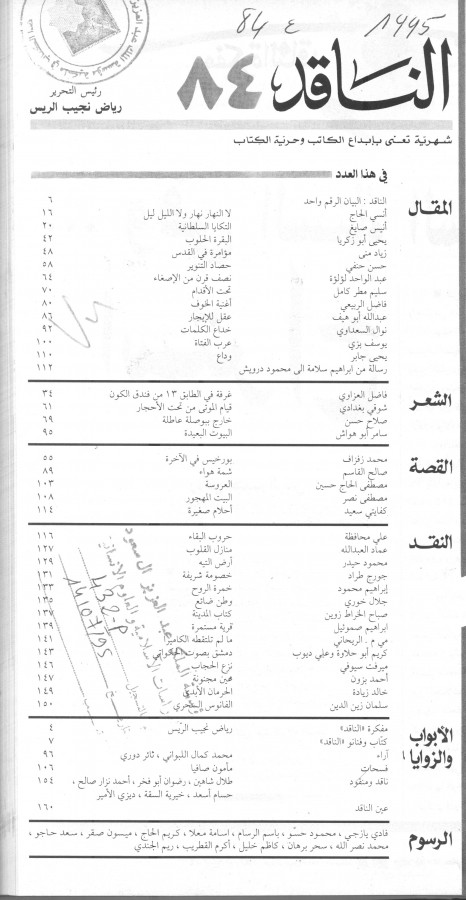 84 ع 1995
الناقد ٨٤
رئيس التحرير
رياض نجيب الريس
شهرية تعنى بإبداع الكاتب وحرية الكتاب
في هذا العدد
المقال
الناقد : البيان الرقم واحد ٦
أنسي الحاج لا النهار نهار ولا الليل ليل ١٦
أنيس صايغ التكايا السلطانية ٢٠
يحيى أبو زكريا البقرة الحلوب ٤٢
زياد منى مؤامرة في القدس ٤٨
حسن حنفي حصاد التنوير ٥٨
عبد الواحد لؤلؤة نصف قرن من الإصغاء ٦٤
سليم مطر كامل تحت الأقدام ٧٠
فاضل الربيعي أغنية الخوف ٨٠
عبدالله أبو هيف عقل للإيجار ٨٦
نوال السعداوي خداع الكلمات ٩٢
يوسف بزي عرب الفتاة ١٠٠
يحيى جابر وداع ١١٠
رسالة من ابراهيم سلامة الى محمود درويش ١١٢
الشعر
فاضل العزاوي غرفة في الطابق ١٣ من فندق الكون ٣٤
شوقي بغدادي قيام الموتى من تحت الأحجار ٦١
صلاح حسن خارج ببوصلة عاطلة ٦٩
سامر أبو هواش البيوت البعيدة ٩٥
القصة
محمد زفزاف بورخيس في الآخرة ٥٥
صالح القاسم شمة هواء ٨٩
مصطفى الحاج حسين العروسة ١٠٣
مصطفى نصر البيت المهجور ١٠٨
كفايتي سعيد أحلام صغيرة ١١٤
النقد
علي محافظة حروب البقاء ١١٦
عماد العبدالله منازل القلوب ١٢٧
محمود حيدر أرض التيه ١٢٩
جورج طراد خصومة شريفة ١٣١
إبراهيم محمود خمرة الروح ١٣٣
جلال خوري وطن ضائع ١٣٥
صباح الخراط زوين كتاب المدينة ١٣٧
ابراهيم صموئيل قرية مستمرة ١٣٩
م . الريحاني ما لم تلتقطه الكاميرا ١٤١
كريم أبو حلاوة وعلي ديوب دمشق بصوت ١٤٣
ميرفت سيوفي نزع الحجاب ١٤٦
أحمد بزون مجنونة ١٤٧
خالد زيادة الحرمان الأبدي ١٤٩
سلمان زين الدين الفانوس السحري ١٥٠
الأبواب والزوايا
رياض نجيب الريّس مفكرة «الناقد» ٤
كتّاب وفنانو «الناقد» ٧
محمد كمال اللبواني ، ثائر دوري آراء ٩٦
مأمون صافيا فسحات ١٠٦
طلال شاهين ، رضوان أبو فخر ، أحمد نزار صالح ، ناقد ومنقود ١٥٤
حسام أسعد ، خيرية السقة ، ديزي الأمير
عين الناقد ١٦٠
الرسوم
فادي يازجي ، محمود حسّو ، باسم الرسام ، اسامة معلا ، كريم الحاج ، ميسون صقر ، سعد حاجو ،
محمد نصر الله ، سحر برهان ، كاظم خليل ، أكرم القطريب ، ريم الجندي
432-P
14/07/95